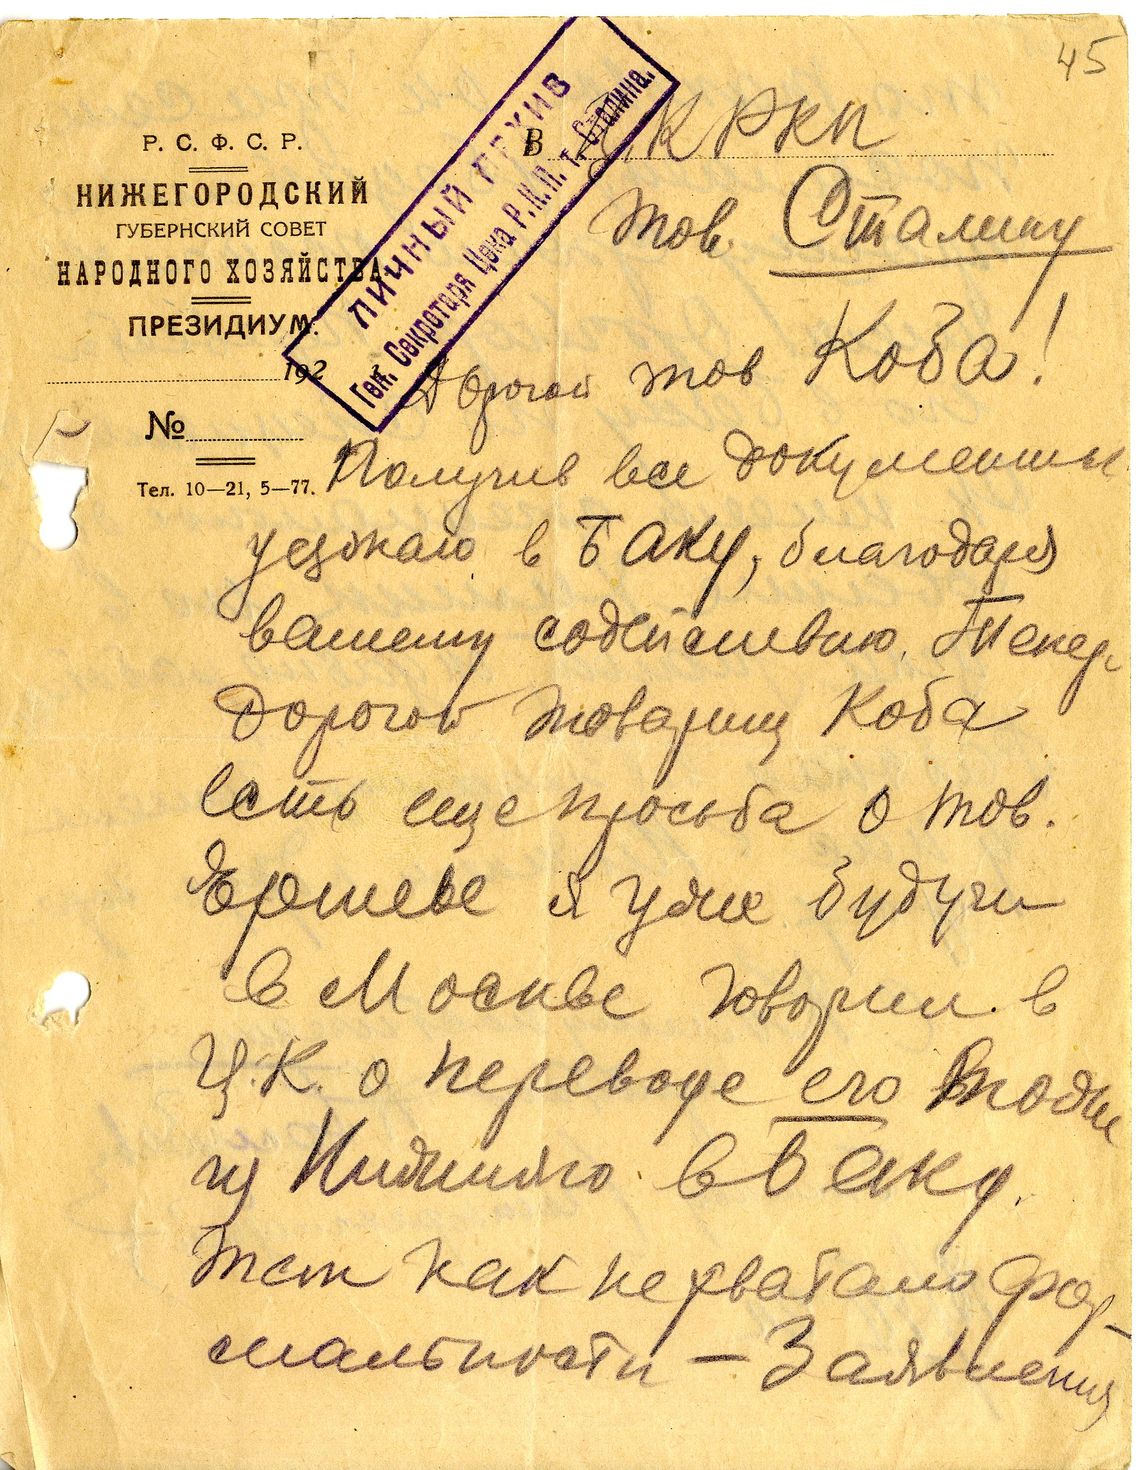 45
Р. С. Ф. С. Р.
НИЖЕГОРОДСКИЙ
ГУБЕРНСКИЙ СОВЕТ
НАРОДНОГО ХОЗЯЙСТВА
ПРЕЗИДИУМ.
192
№
Тел. 10—21, 5—77.
ЛИЧНЫЙ АРХИВ
Ген. Секретаря Цека Р.К.П. т. Сталина.
В Ц.К РКП
тов. Сталину
Дорогой тов Коба!
Получив все документы
уезжаю в Баку, благодаря
вашему содействию. Теперь
дорогой товарищ Коба
есть еще просьба о тов.
Ершеве я уже будучи
в Москве говорил в
Ц.К. о переводе его тоже
из Нижняго в Баку.
так как не хватало фор-
мальности — Заявления